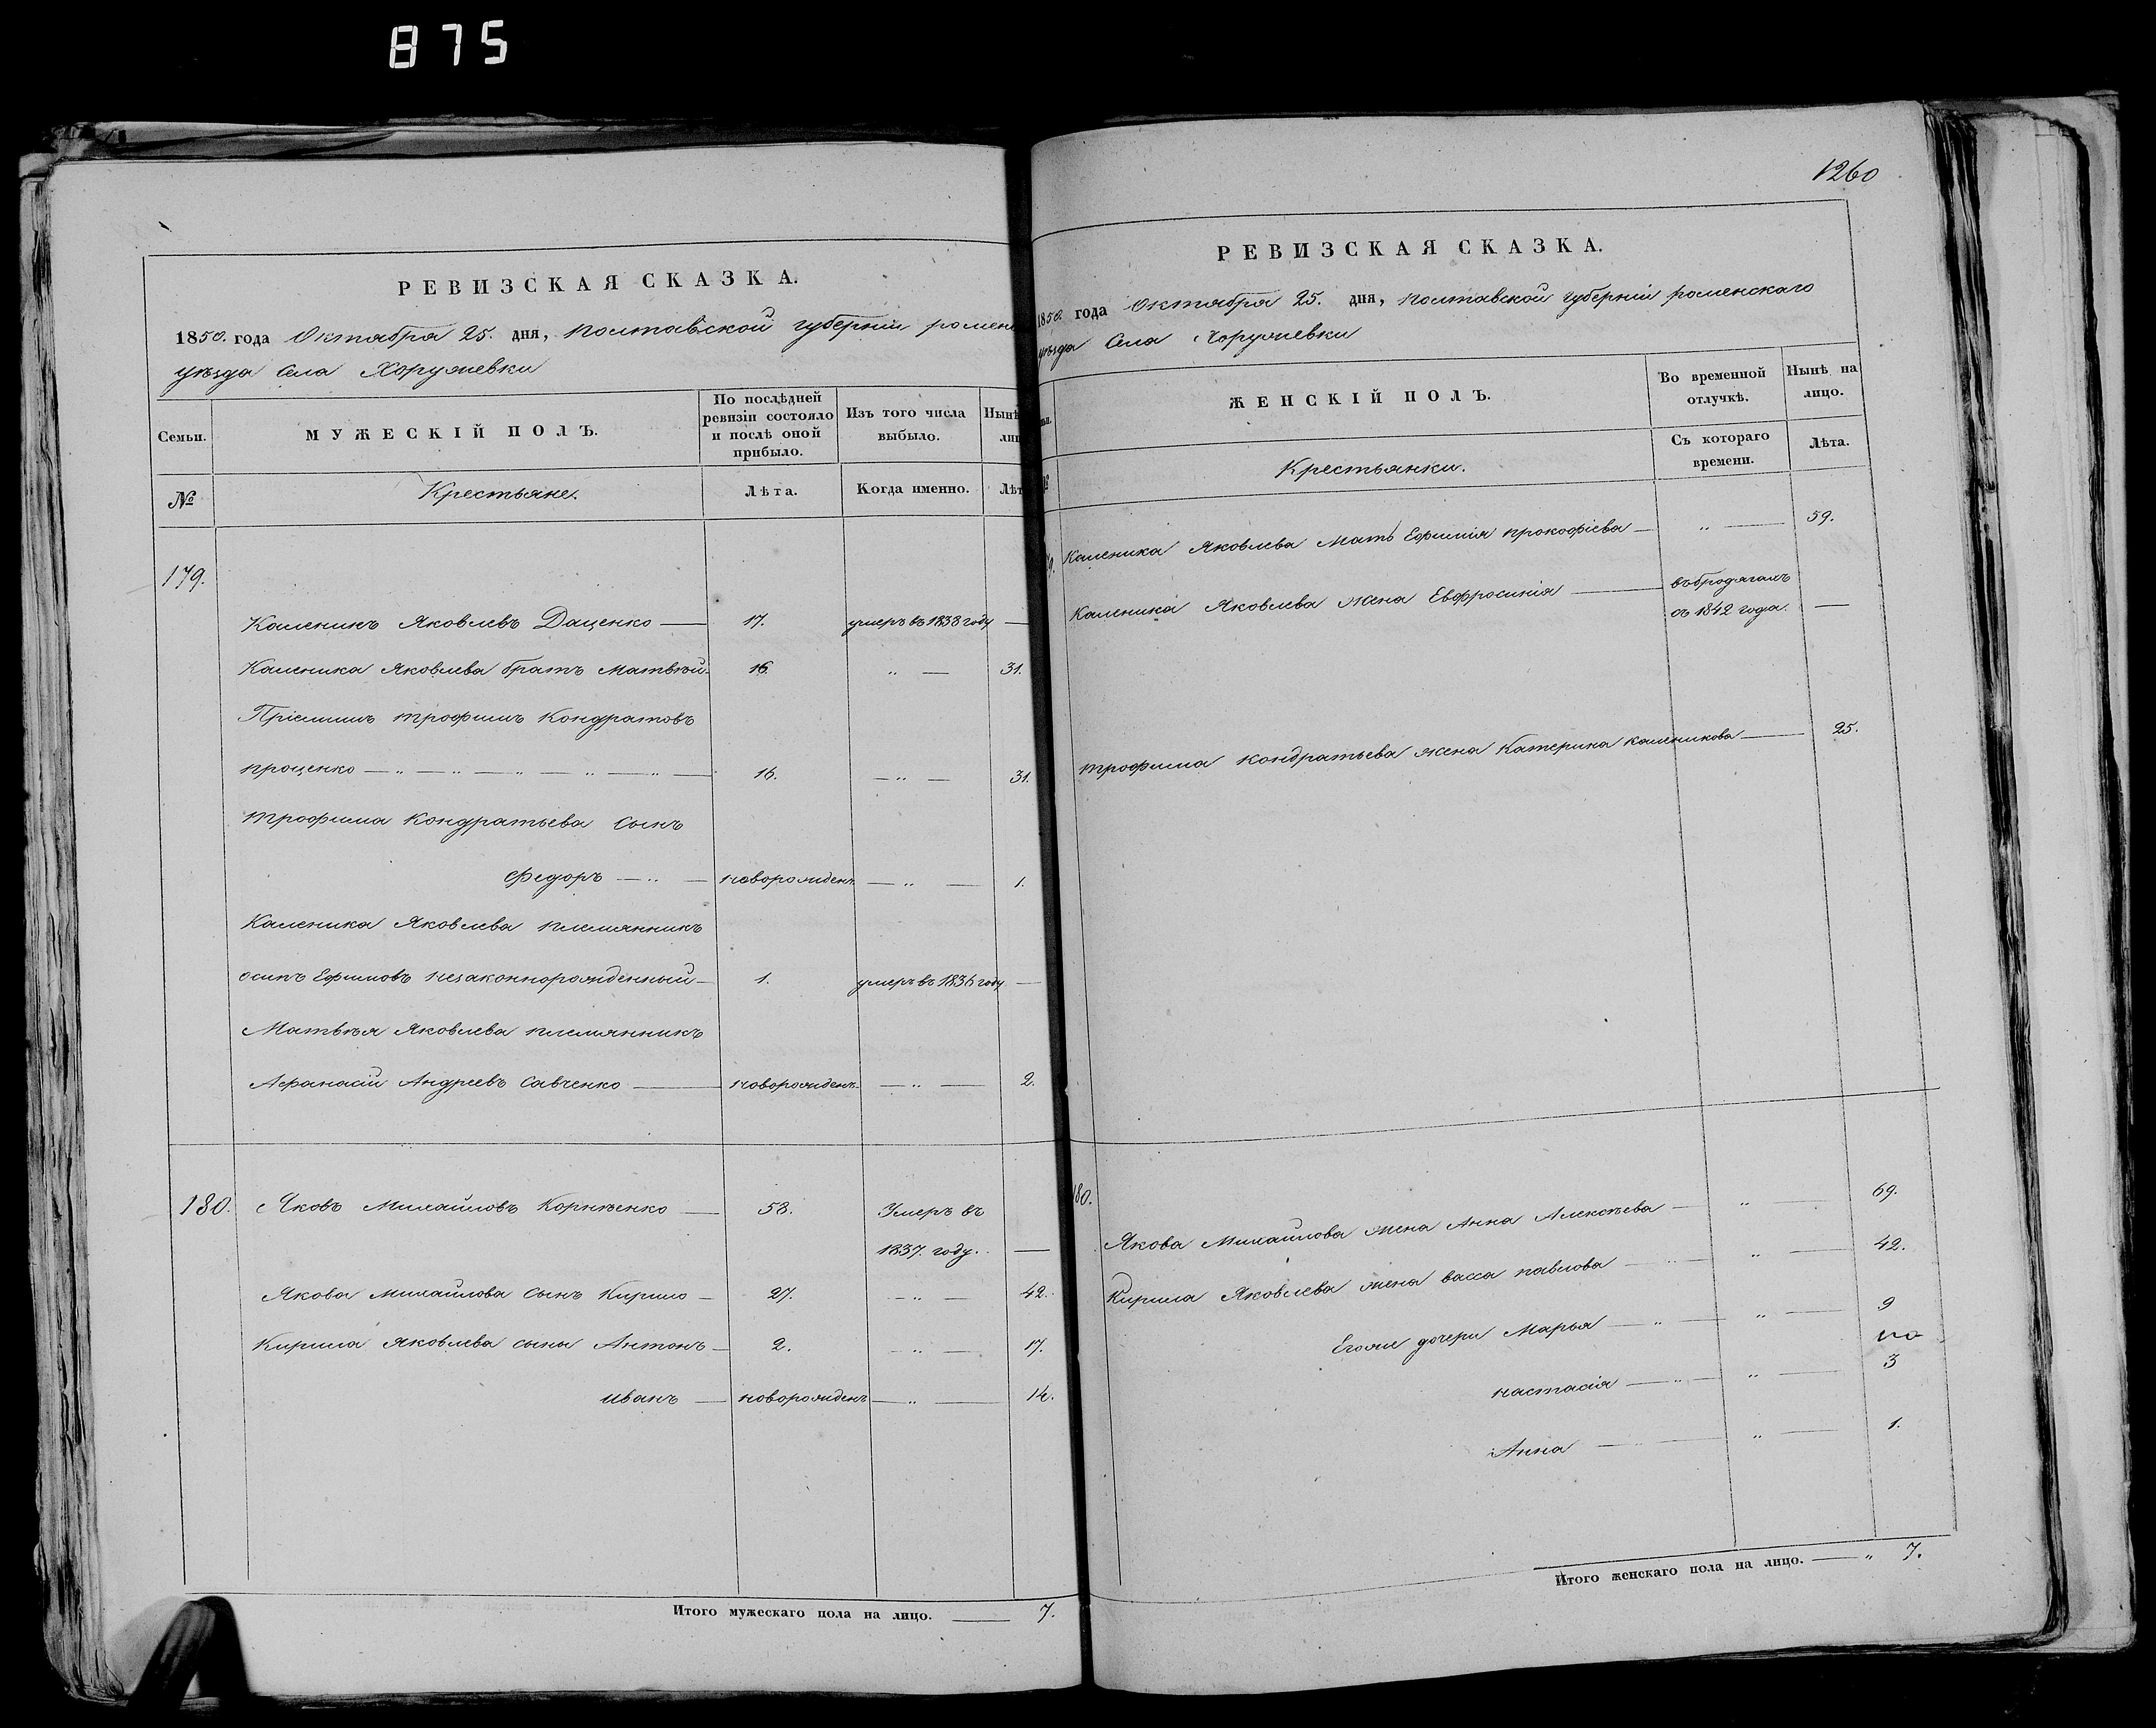 875
РЕВИЗСКАЯ СКАЗКА.
1850. года Октября 25. дня, полтавской губерніи ромен
уѣзда села Хоружевки
Семьи.
МУЖЕСКІЙ ПОЛЪ.
По послѣдней
ревизіи состояло
и послѣ оной
прибыло.
Изъ того числа
выбыло.
Нынѣ
лиц
№
Крестьяне.
Лѣта.
Когда именно.
Лѣт
179.
Каленикъ Яковлевъ Даценко — 17. умеръ въ 1838 году —
Каленика Яковлева братъ Матвѣй - 16. „ — 31.
Пріемишъ трофимъ Кондратовъ
проценко — „ — „ — „ — „ — „ — 16. — „ — 31.
трофима Кондратьева сынъ
Федоръ — „ — новорожденъ — „ — 1.
Каленика Яковлева племянникъ
осипъ Ефимовъ незаконнорожденный — 1. умеръ въ 1836 году —
Матвѣя Яковлева племянникъ
Афанасій Андреевъ Савченко — новорожденъ — „ — 2.
180. Яковъ Михайловъ Корнѣенко — 53. Умеръ въ
1837. году. —
Якова Михайлова сынъ Кирило — 27. — „ — 42.
Кирила Яковлева сыны Антонъ — 2. — „ — 17.
иванъ — новорожденъ — „ — 14.
Итого мужескаго пола на лицо. — 7.
1260
РЕВИЗСКАЯ СКАЗКА.
1850. года Октября 25. дня, полтавской губерніи роменскаго
уѣзда Села Хоружевки
ЖЕНСКІЙ ПОЛЪ.
Во временной
отлучкѣ.
Нынѣ на
лицо.
Крестьянки.
Съ котораго
времени.
Лѣта.
Каленика Яковлева Мать Ефимія прокофіева — „ — 59.
Каленика Яковлева жена Евфросинія — въ бродягахъ
съ 1842 года. —
трофима Кондратьева жена Катерина каленикова — 25.
180.
Якова Михайлова жена Анна Алексѣева — „ — 69.
Кирила Яковлева жена васса павлова — „ — 42.
Егоже дочери Марья — „ — „ — 9
настасія — „ — „ — 3
Анна — „ — „ — 1.
Итого женскаго пола на лицо. — „ 7.